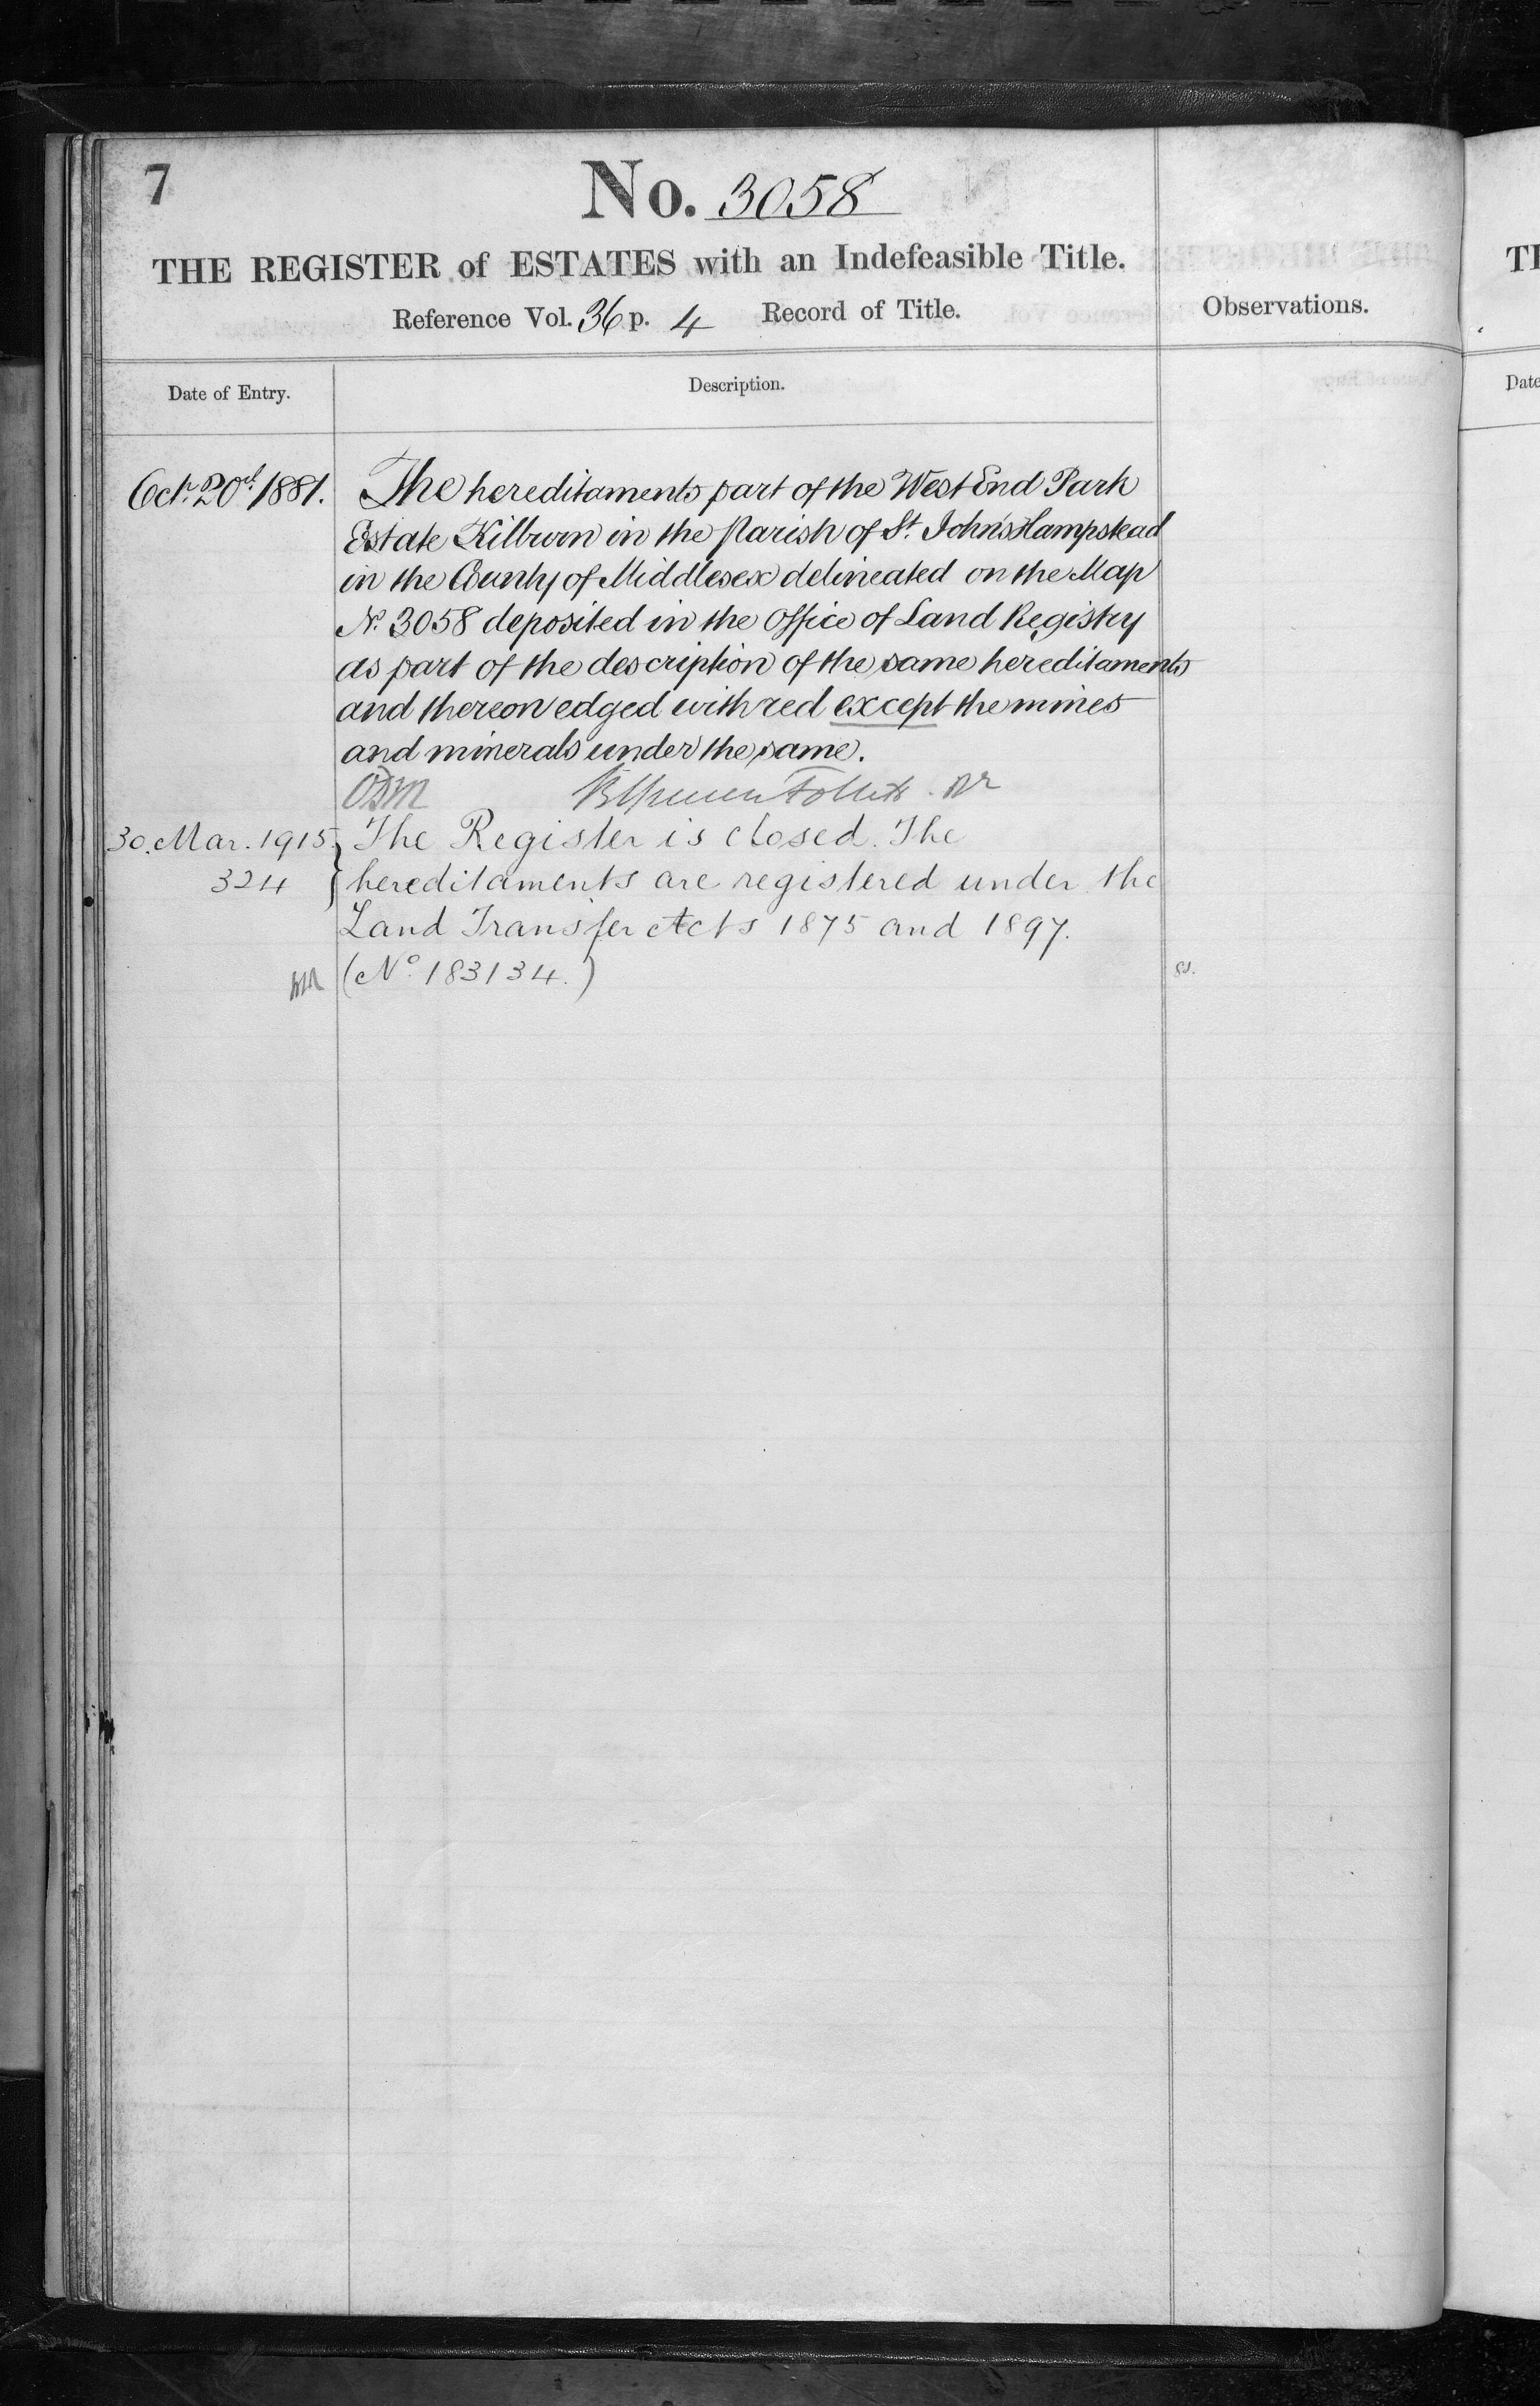 7
No. 3058
THE REGISTER of ESTATES with an Indefeasible Title.
Reference Vol. 36 p. 4 Record of Title.
Observations.
Date of Entry.
Description.
Octr. 20th 1881.
The hereditaments part of the West End Park
Estate Kilburn in the Parish of St. John's Hampstead
in the County of Middlesex delineated on the Map
No. 3058 deposited in the Office of Land Registry
as part of the description of the same hereditaments
and thereon edged with red except the mines
and minerals under the same.
30. Mar. 1915.
324
The Register is closed. The
hereditaments are registered under the
Land Transfer Acts 1875 and 1897.
(No. 183134.)
TI
Date